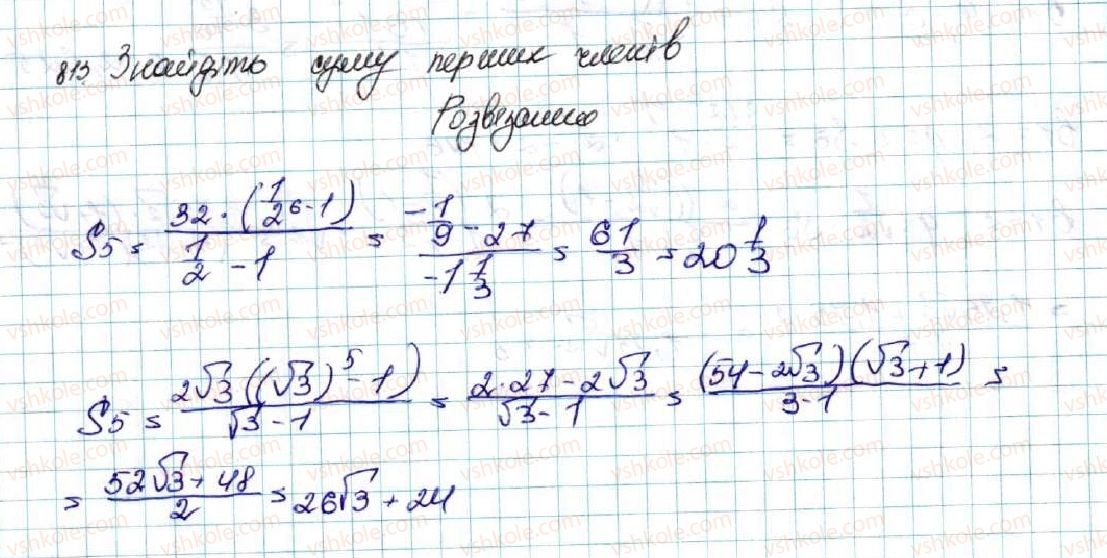 813 Знайдіть суму перших членів
Розвезання
S5 = 32 · (1/2 6 - 1) / (1/2 - 1) = (-1/9 - 27) / (-1 1/3) = 61/3 = 20 1/3
S5 = 2√3((√3)^5 - 1) / (√3 - 1) = (2·27 - 2√3) / (√3 - 1) = (54 - 2√3)(√3 + 1) / (3 - 1) =
= (52√3 + 48) / 2 = 26√3 + 24